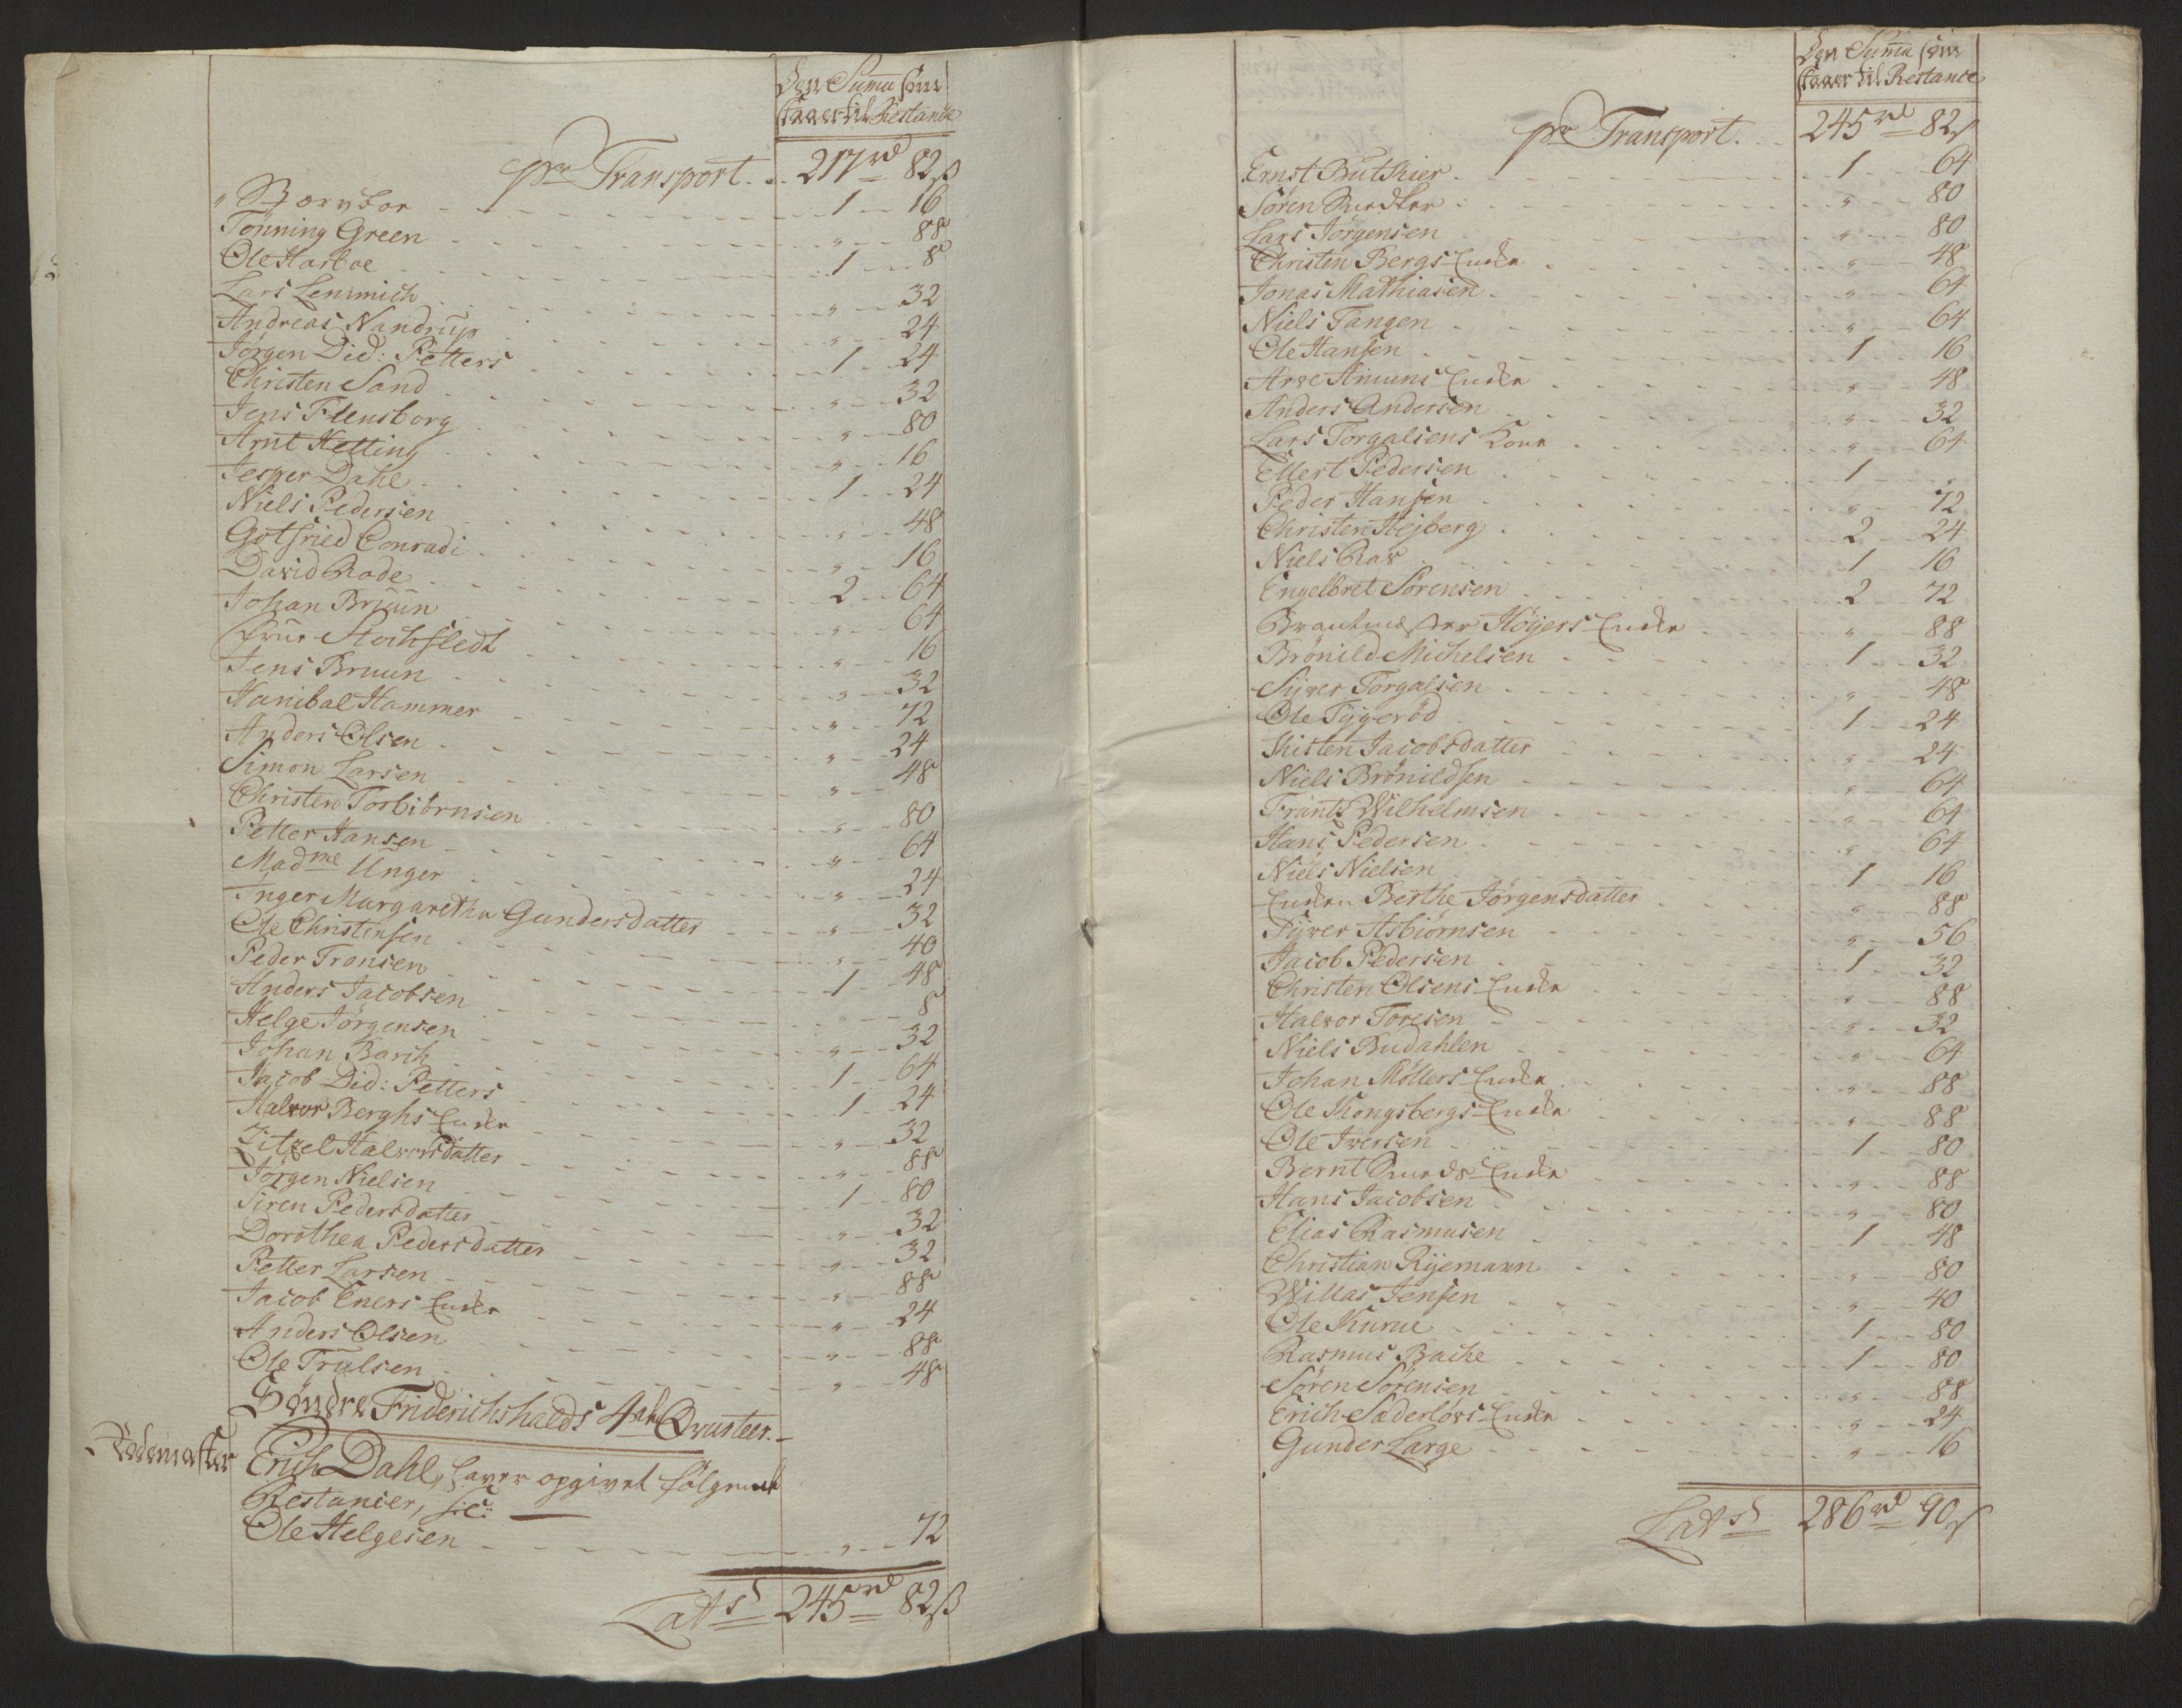 Den Suma som
staaer til Restance
pr Transport. . . 217 rd 82 ß
" Børnboe 1 16
Tønning Green " 88
Ole Harboe 1 8
Lars Lemmich " 32
Andreas Nandrup " 24
Jørgen Did: Petters 1 24
Christen Sand " 32
Jens Flensborg " 80
Arnt Hetting " 16
Jesper Dahl 1 24
Niels Pedersen " 48
Gotfried Conradi " 16
David Rode 2 64
Johan Bruun " 64
frue Stochfledt " 16
Jens Bruun " 32
Hanibal Hammer " 72
Anders Olsen " 24
Simon Larsen " 48
Christen Torbiörnsen " 80
Petter Hansen " 64
Madme Unger " 24
Inger Margaretha Gundersdatter " 32
Ole Christensen " 40
Peder Tronsen 1 48
Anders Jacobsen " 8
Helge Jörgensen " 32
Johan Barth 1 64
Jacob Did: Petters 1 24
Halvor Berghs Encke " 32
Zitzel Halvorsdatter " 88
Jörgen Nielsen 1 80
Siren Pedersdatter " 32
Dorothea Pedersdatter " 32
Petter Larsen " 88
Jacob Eners Encke " 24
Anders Olsen " 88
Ole Trulsen " 48
Söndre Friderichshalds 4de Qvarteer.
Rodemaster Erich Dahl, haver opgivet følgende
Restancer, sc:
Ole Helgesen " 72
Latsd 245 rd 82 ß
Den Suma som
staaer til Restance
pr Transport. 245 rd 82 ß
Ernst Buthier 1 64
Sören Snedker " 80
Lars Jörgensen " 80
Christen Bergs Encke " 48
Jonas Mathiasen " 64
Niels Tangen " 64
Ole Hansen 1 16
Arve Amuns Encke " 48
Anders Andersen " 32
Lars Torgalsens Kone " 64
Ellert Pedersen 1 "
Peder Hansen " 72
Christen Hejberg 2 24
Niels Rav 1 16
Engelbret Sörensen 2 72
Brantmester Höyers Encke " 88
Brönild Michelsen 1 32
Syver Torgalsen " 48
Ole Tygeröd 1 24
Kisten Jacobsdatter " 24
Niels Brönildsen " 64
Frantz Wilhelmsen " 64
Hans Pedersen " 64
Niels Nielsen 1 16
Encken Berthe Jörgensdatter " 88
Syver Asbiörnsen " 56
Jacob Pedersen 1 32
Christen Olsens Encke " 88
Halvor Toresen " 32
Niels Budahlen " 64
Johan Möllers Encke " 88
Ole Kongsbergs Encke " 88
Ole Iversen 1 80
Bernt Smeds Encke " 88
Hans Jacobsen " 80
Elias Rasmusen 1 48
Christian Ryemann " 80
Willas Jensen " 40
Ole Kurue 1 80
Rasmus Bache 1 80
Sören Sörensen " 88
Erich Säderlövs Encke " 24
Gunder Large " 16
Latsd 286 rd 90 ß